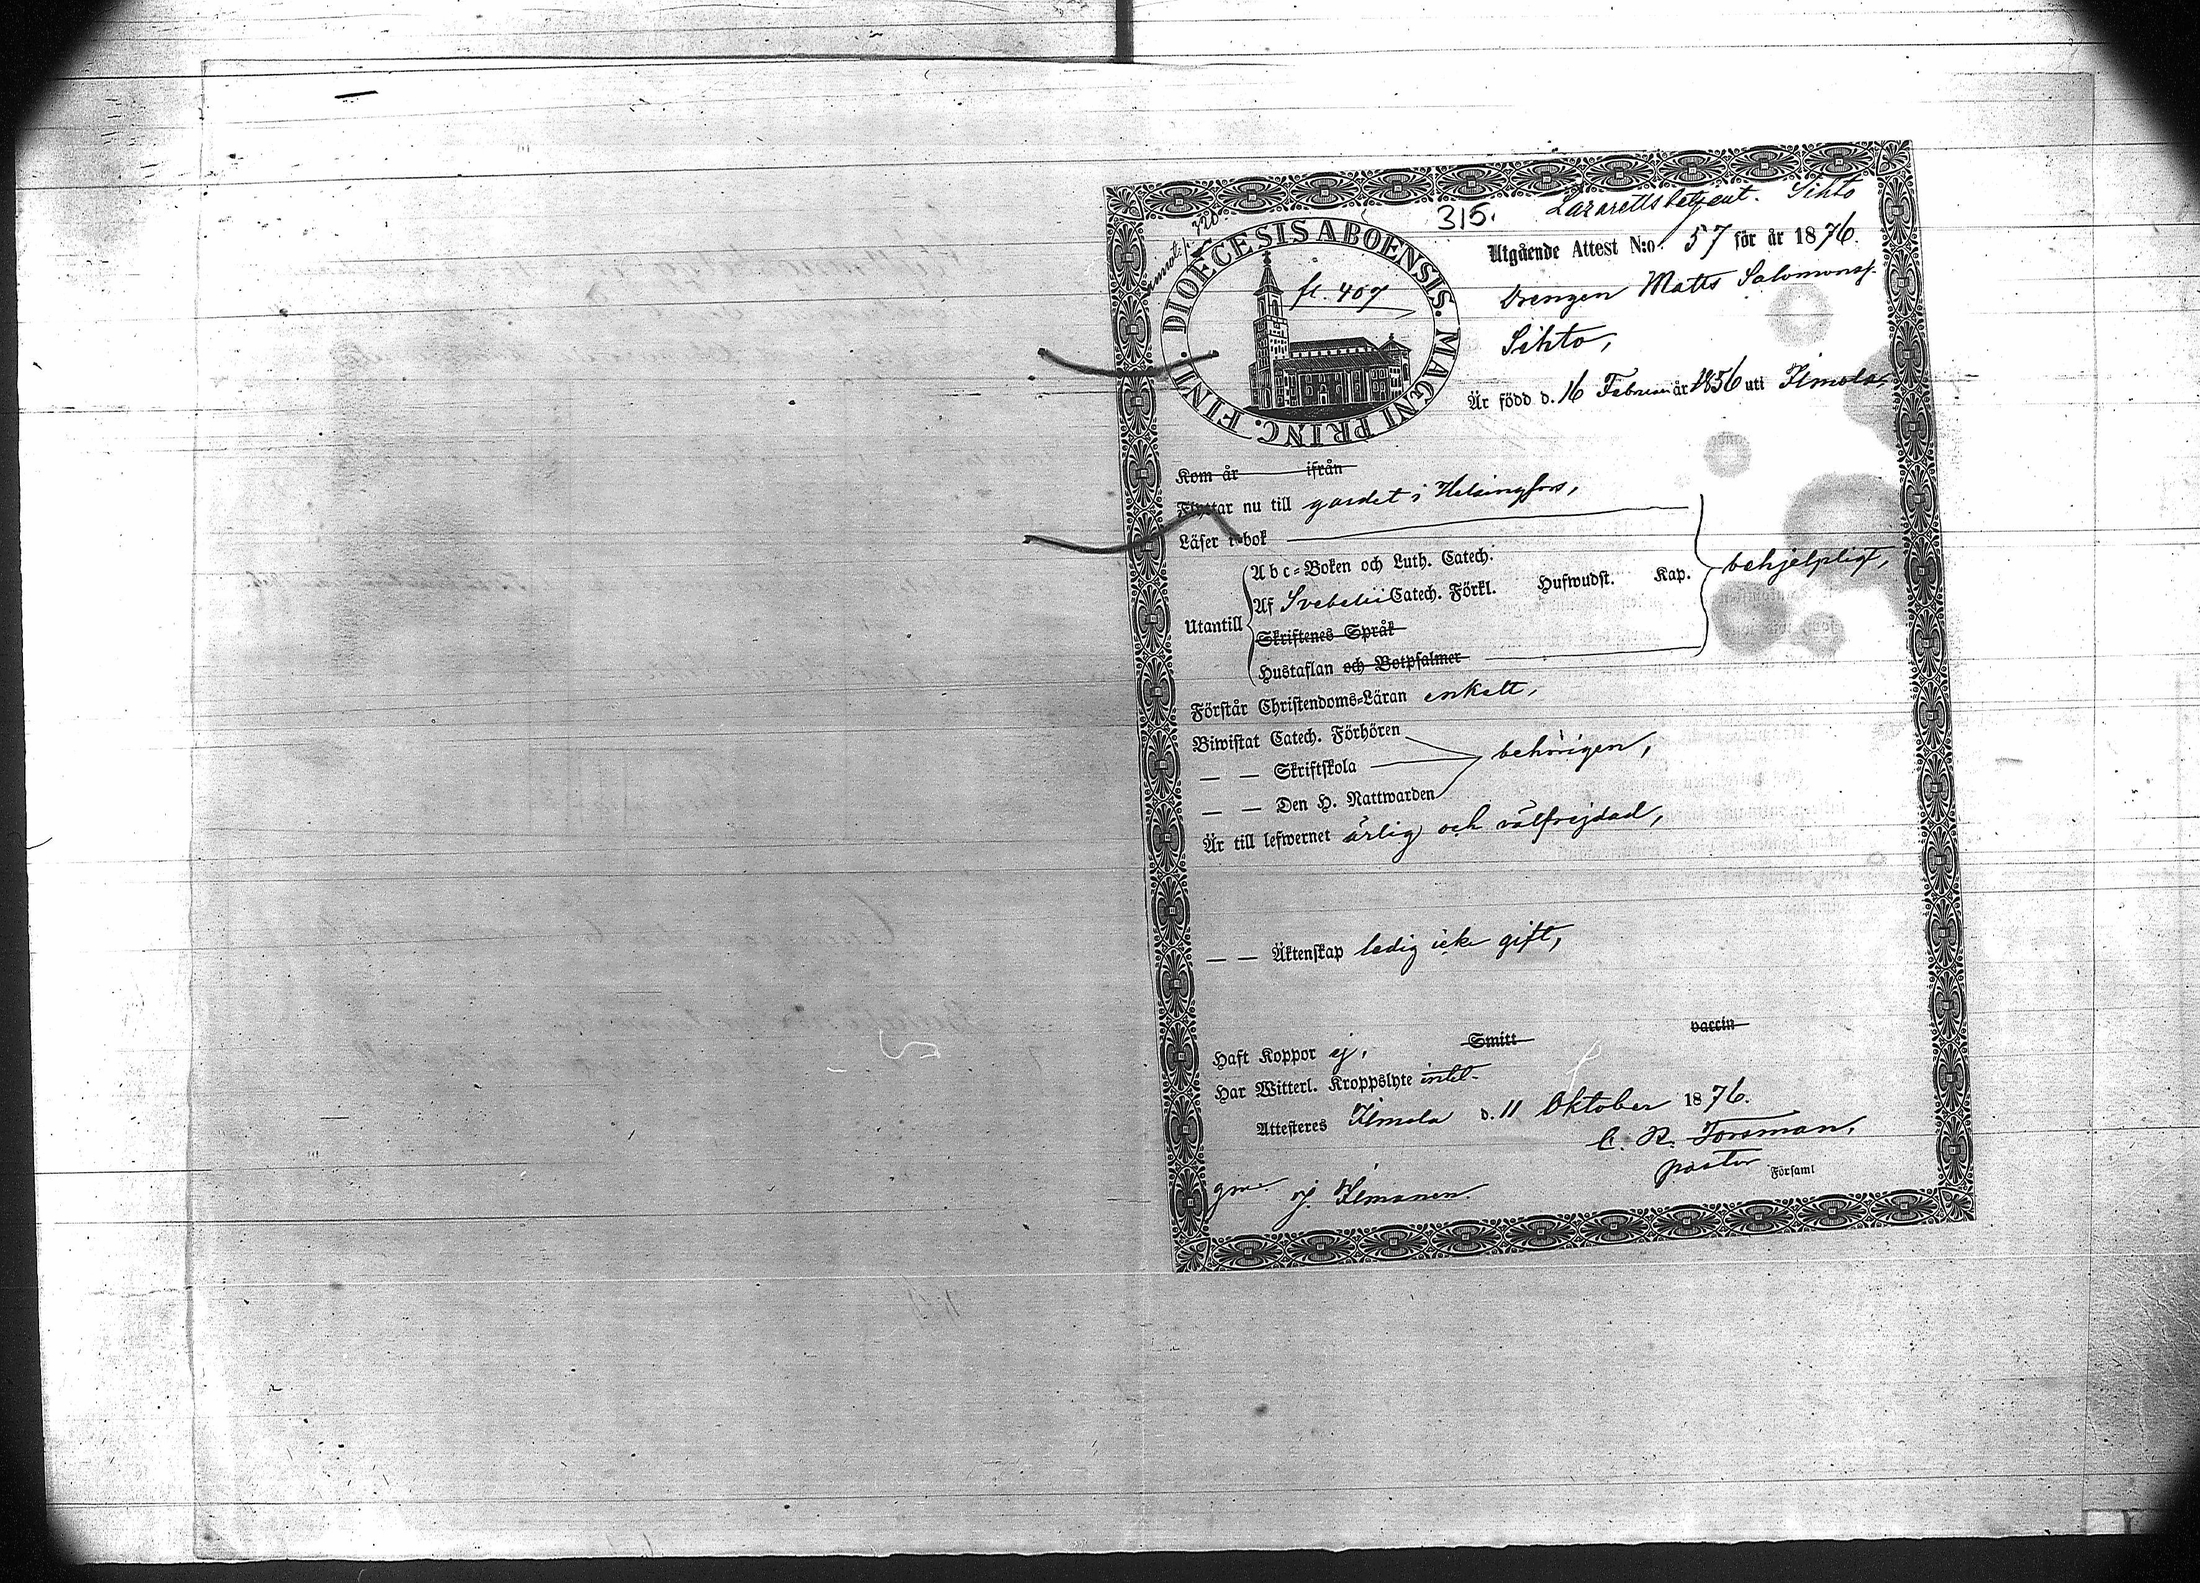 315. Lazarettsbetjent. Sihto
Utgående Attest N:o 57 för år 1876.
DIOECESIS ABOENSIS. MAGNI PRINC. FINL.
fl. 407
Drengen Matts Salomonsf.
Sihto,
Är född d. 16 Februari år 1856 uti Ilmola,
Kom år ifrån
Flyttar nu till gardet i Helsingfors,
Läser i bok
Abc-Boken och Luth. Catech.
Utantill Af Svebelii Catech. Förkl. Hufwudst. Kap. behjelpligt,
Skriftenes Språk
Hustaflan och Botpsalmer
Förstår Christendoms-Läran enkelt,
Biwistat Catech. Förhören
— — Skriftskola behörigen,
— — Den H. Nattwarden
Är till lefwernet ärlig och välfrejdad,
— — Äktenskap ledig icke gift,
Haft Koppor ej, Smitt vaccin
Har Witterl. Kroppslyte intet.
Attesteres Ilmola d. 11 Oktober 1876.
C. R. Forsman,
pastor Församl
J. Ilmonen.